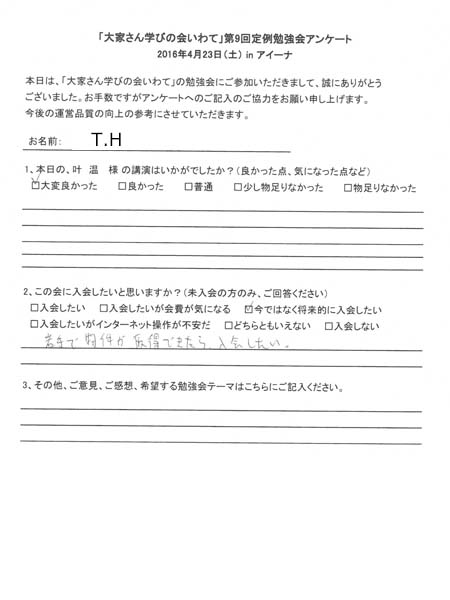 「大家さん学びの会いわて」第9回定例勉強会アンケート
2016年4月23日(土) in アイーナ
本日は、「大家さん学びの会いわて」の勉強会にご参加いただきまして、誠にありがとう
ございました。お手数ですがアンケートへのご記入のご協力をお願い申し上げます。
今後の運営品質の向上の参考にさせていただきます。
お名前: T.H
1、本日の、叶 温 様 の講演はいかがでしたか?(良かった点、気になった点など)
☑大変良かった □良かった □普通 □少し物足りなかった □物足りなかった
2、この会に入会したいと思いますか?(未入会の方のみ、ご回答ください)
□入会したい □入会したいが会費が気になる ☑今ではなく将来的に入会したい
□入会したいがインターネット操作が不安だ □どちらともいえない □入会しない
岩手で物件が取得できたら、入会したい。
3、その他、ご意見、ご感想、希望する勉強会テーマはこちらにご記入ください。